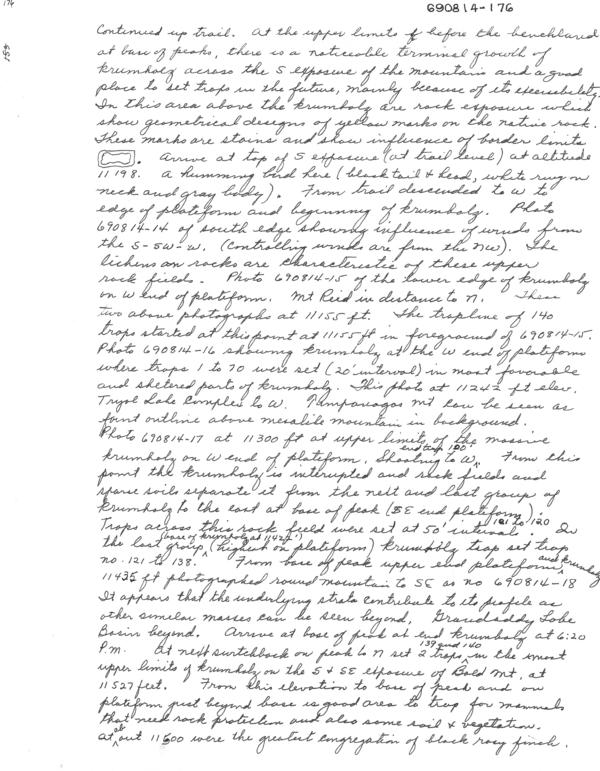 176
690814-176
159
Continued up trail. At the upper limits & before the benchland
at base of peaks, there is a noticeable terminal growth of
krumholz across the S exposure of the mountain and a good
place to set traps in the future, mainly because of its accessibility.
In this area above the krumholz are rock exposure which
show geometrical designs of yellow marks on the native rock.
These marks are stains and show influence of border limits
. Arrive at top of S exposure (at trail level) at altitude
11198. A humming bird here (black tail & head, white ring on
neck and gray body). From trail descended to W to
edge of plateform and beginning of krumholz. Photo
690814-14 of south edge showing influence of winds from
the S-SW-W. (Controlling winds are from the NW). The
lichens on rocks are characteristic of these upper
rock fields. Photo 690814-15 of the lower edge of krumholz
on W end of plateform. Mt Reid in distance to N. These
two above photographs at 11155 ft. The trapline of 140
traps started at this point at 11155 ft in foreground of 690814-15.
Photo 690814-16 showing krumholz at the W end of plateform
where traps 1 to 70 were set (20' interval) in most favorable
and sheltered parts of krumholz. This photo at 11242 ft elev.
Tryol Lake Complex to W. Timpanogas Mt can be seen as
faint outline above mesalike mountain in background.
Photo 690814-17 at 11300 ft at upper limits of the massive
end trap 100
krumholz on W end of plateform. Shooting to W. From this
point the krumholz is interupted and rock fields and
sparse soils separate it from the next and last group of
krumholz to the east at base of peak (SE end plateform).
101 to 120
Traps across this rock field were set at 50' intervals. In
base of krumholz at 11427'
the last group (highest on plateform) krumholz trap set trap
and krumholz
no. 121 to 138. From base of peak upper end plateform
11435 ft photographed round mountain to SE as no 690814-18
It appears that the underlying strata contribute to its profile as
other similar masses can be seen beyond, Grandaddy Lake
Basin beyond. Arrive at base of peak at end krumholz at 6:20
139 and 140
P.M. At next switchback on peak to N set 2 traps in the most
upper limits of krumholz on the S & SE exposure of Bald Mt. at
11527 feet. From this elevation to base of peak and on
plateform just beyond base is good area to trap for mammals
that need rock protection and also some soil & vegetation.
At about 11600 were the greatest congregation of black rosy finch.